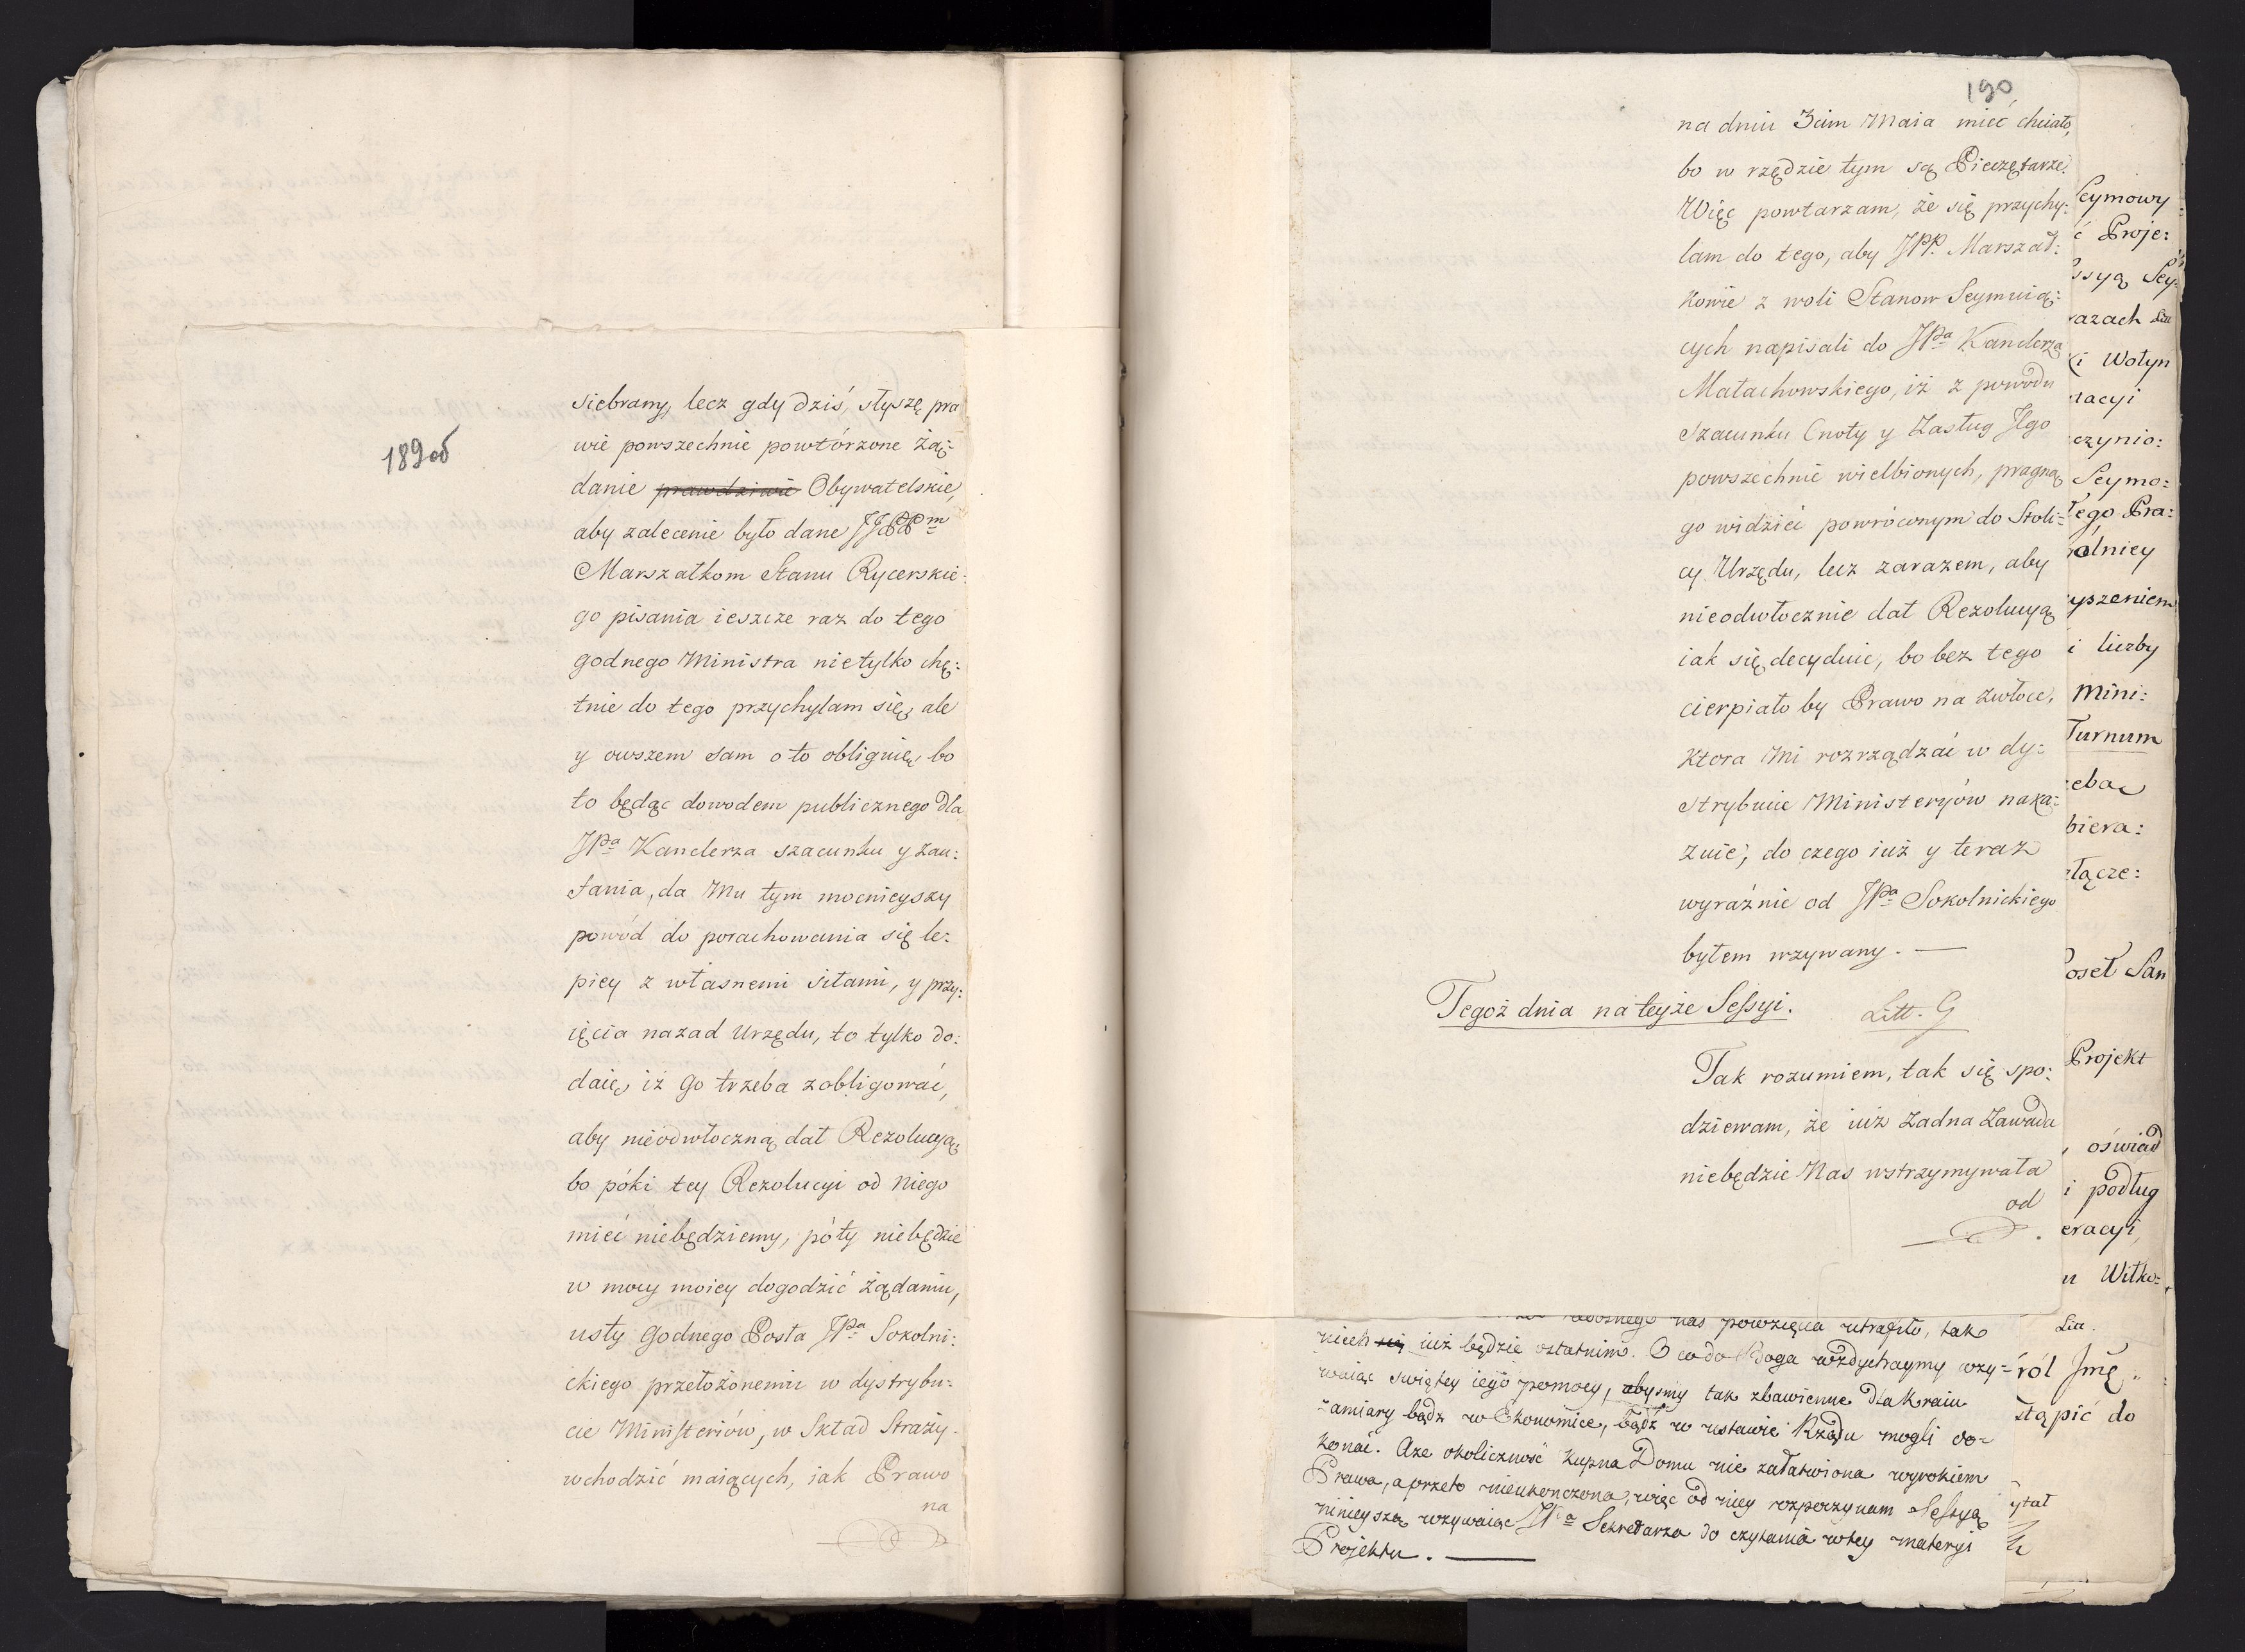 189об
siebrany, lecz gdy dziś, słyszę pra
wie powszechnie powtórzone żą:
danie prawdziwie Obywatelskie,
aby zalecenie było dane JJPPm
Marszałkom Stanu Rycerskie:
go pisania ieszcze raz do tego
godnego Ministra nietylko chę:
tnie do tego przychylam się, ale
y owszem sam o to obliguię, bo
to będąc dowodem publicznego dla
JPa Kanclerza szacunku y zau:
fania, da Mu tym mocnieyszy
powód do porachowania się le:
piey z własnemi siłami, y przy:
ięcia nazad Urzędu, to tylko do:
daię, iż Go trzeba zobligować,
aby nieodwłoczną dał Rezolucyą
bo póki tey Rezolucyi od Niego
mieć niebędziemy, póty niebędzie
w mocy moiey dogodzić żądaniu,
usty Godnego Posła JPa Sokolni:
ckiego przełożonemu w dystrybu:
cie Ministeriów, w Skład Straży
wchodzić maiących, iak Prawo
na
190
na dniu 3cim Maia mieć chciało,
bo w rzędzie tym są Pieczętarze.
Więc powtarzam, że się przychy:
lam do tego, aby JPP. Marszał:
kowie z woli Stanow Seymuią:
cych napisali do JPa Kanclerza
Małachowskiego, iż z powodu
Szacunku Cnoty y Zasług Jego
powszechnie wielbionych, pragną
go widzieć powróconym do Stoli:
cy Urzędu, lecz zarazem, aby
nieodwłocznie dał Rezolucyą
iak się decyduie, bo bez tego
cierpiało by Prawo na zwłoce,
ktora Mi rozrządzać w dy:
strybucie Ministeryów naka:
zuie, do czego iuż y teraz
wyraźnie od JPa Sokolnickiego
byłem wzywany. —
Tegoż dnia na teyże Sessyi. Litt. G
Tak rozumiem, tak się spo:
dziewam, że iuż żadna Zawada
niebędzie Nas wstrzymywała
od
nas powzięcia utrafiło, tak
niech się iuż będzie ostatnim. O co do Boga wzdychaymy wzy=
waiąc Swiętey iego pomocy, abyśmy tak zbawienne dla Kraiu
zamiary bądz w Ekonomice, bądź w ustawie Rządu mogli do=
konać. Aże okoliczność kupna Domu nie załatwiona wyrokiem
Prawa, a przeto nieukonczona, więc od niey rozpoczynam Sessyą
ninieyszą wzywaiąc JPa Sekretarza do czytania wtey materyi
Projektu. —
Seymowy
ć Proje:
ssyą Sey
azach Litt
i Wołyn
tacyi
czynio:
Seymo:
Tego Pra:
olniey
yszeniem
i liczby
Mini:
Turnum
eba
biera:
łącze:
oseł San
Projekt
, oświad
i podług
eracyi,
u Witko:
Litt.
ról Jmę
stąpić do
ytał